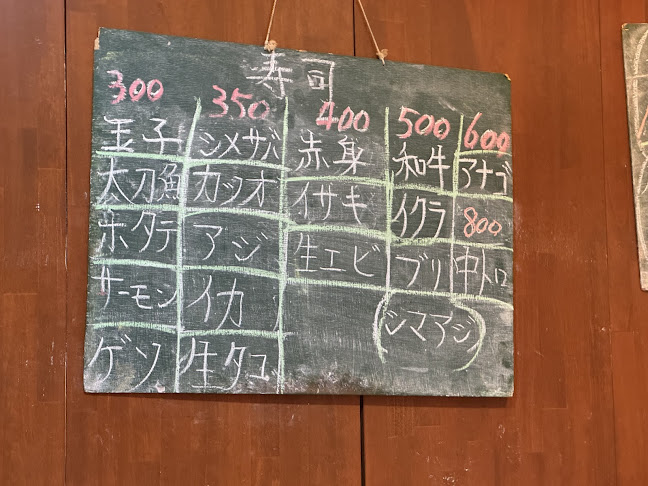 寿司
300 350 400 500 600
玉子 シメサバ 赤身 和牛 アナゴ
太刀魚 カツオ イサキ イクラ 800
ホタテ アジ 生エビ ブリ 中トロ
サーモン イカ (シマアジ)
ゲソ 生タコ